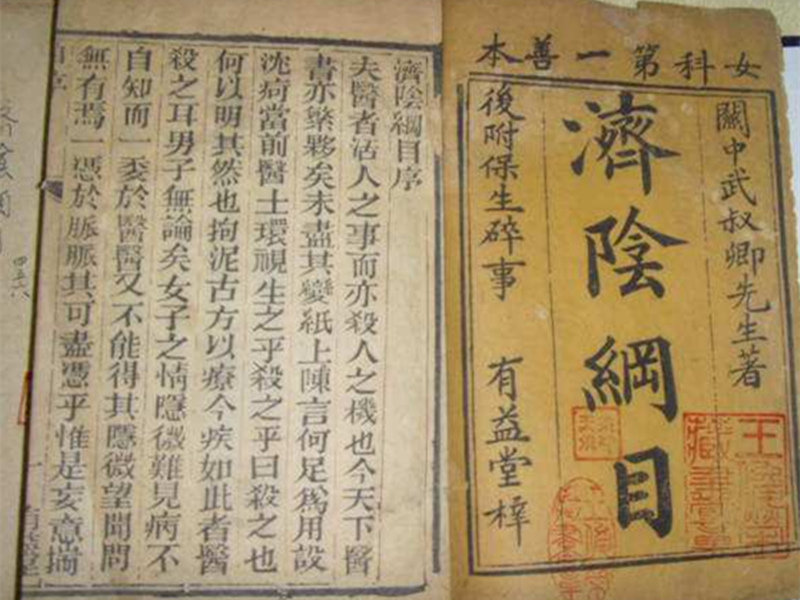 女科第一善本
關中武叔卿先生著
濟陰綱目
後附保生碎事 有益堂梓
濟陰綱目序
夫醫者活人之事而亦殺人之機也今天下醫
書亦夥矣未盡其變紙上陳言何足爲用設
沈疴當前醫士環視生之乎殺之乎曰殺之也
何以明其然也拘泥古方以療今疾如此者醫
殺之耳男子無論矣女子之情隱微難見病不
自知而一委於醫醫又不能得其隱微望聞問
無有焉一憑於脈脈其可盡憑乎惟是妄意揣
四五六